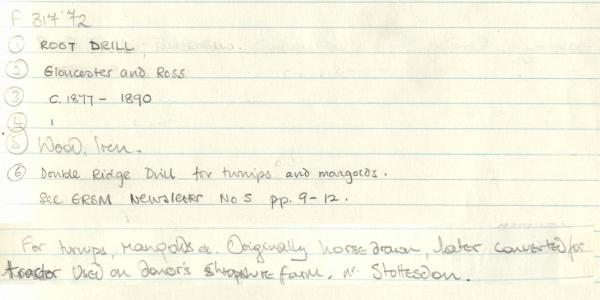 F 317'72
① ROOT DRILL
② Gloucester and Ross
③ C. 1877 - 1890
④ 1
⑤ Wood, Iron.
⑥ Double Ridge Drill for turnips and mangolds.
See ERSM Newsletter No 5 pp. 9-12.
For turnips, mangolds &c. Originally horse drawn, later converted for
tractor used on donor's Shropshire farm, nr. Stottesdon.